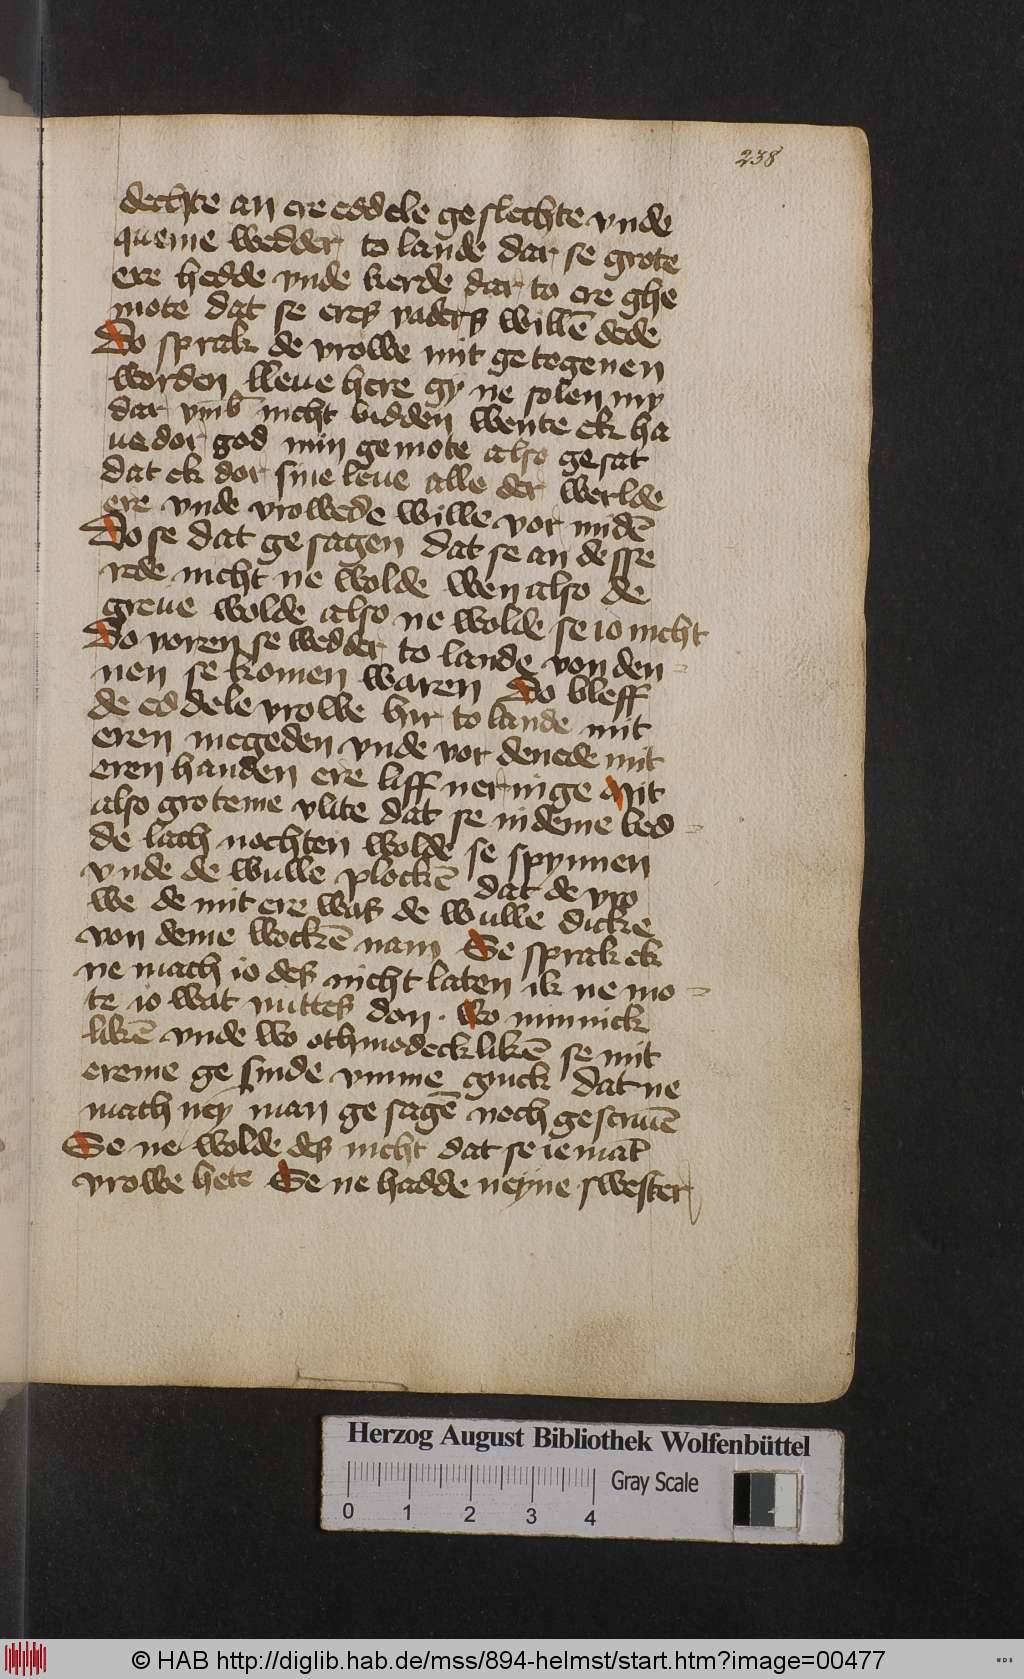 238
dechte an ere eddele geslechte vnde
queme wedder to lande dar se grote
ere hedde vnde kerde dar to ere ghe
mote dat se eres vaders willē dede
Do sprak de vrowe mit getogenen
worden lleue here gy ne solen my
dar vmb nicht bidden wente ek ha
ue dor god min gemote also gesat
dat ek dor sine leue alle der werlde
ere vnde vrowede wille vor midē
Do se dat gesagen dat se an desse
rede nicht ne wolde wen also de
greue wolde also ne wolde se io nicht
Do voren se wedder to lande von den =
nen se komen waren Do bleff
de eddele vrowe hir to lande mit
eren megeden vnde vor denede mit
eren handen ere liff neringe Mit
also groteme vlite dat se in deme bed =
de lach nochten wolde se spynnen
vnde de wulle plockē dat de vro
we de mit ere was de wulle dicke
von deme wockē nam Se sprak ek
ne mach io des nicht laten ik ne mo =
te io wat nuttes don . Wo minnick
likē vnde wo othmodecklikē se mit
ereme gesinde vmme ginck dat ne
mach ney man gesagē noch gescriuē
Se ne wolde des nicht dat se iemāt
vrowe hete Se ne hadde neyne swester
Herzog August Bibliothek Wolfenbüttel
Gray Scale
0 1 2 3 4
© HAB http://diglib.hab.de/mss/894-helmst/start.htm?image=00477